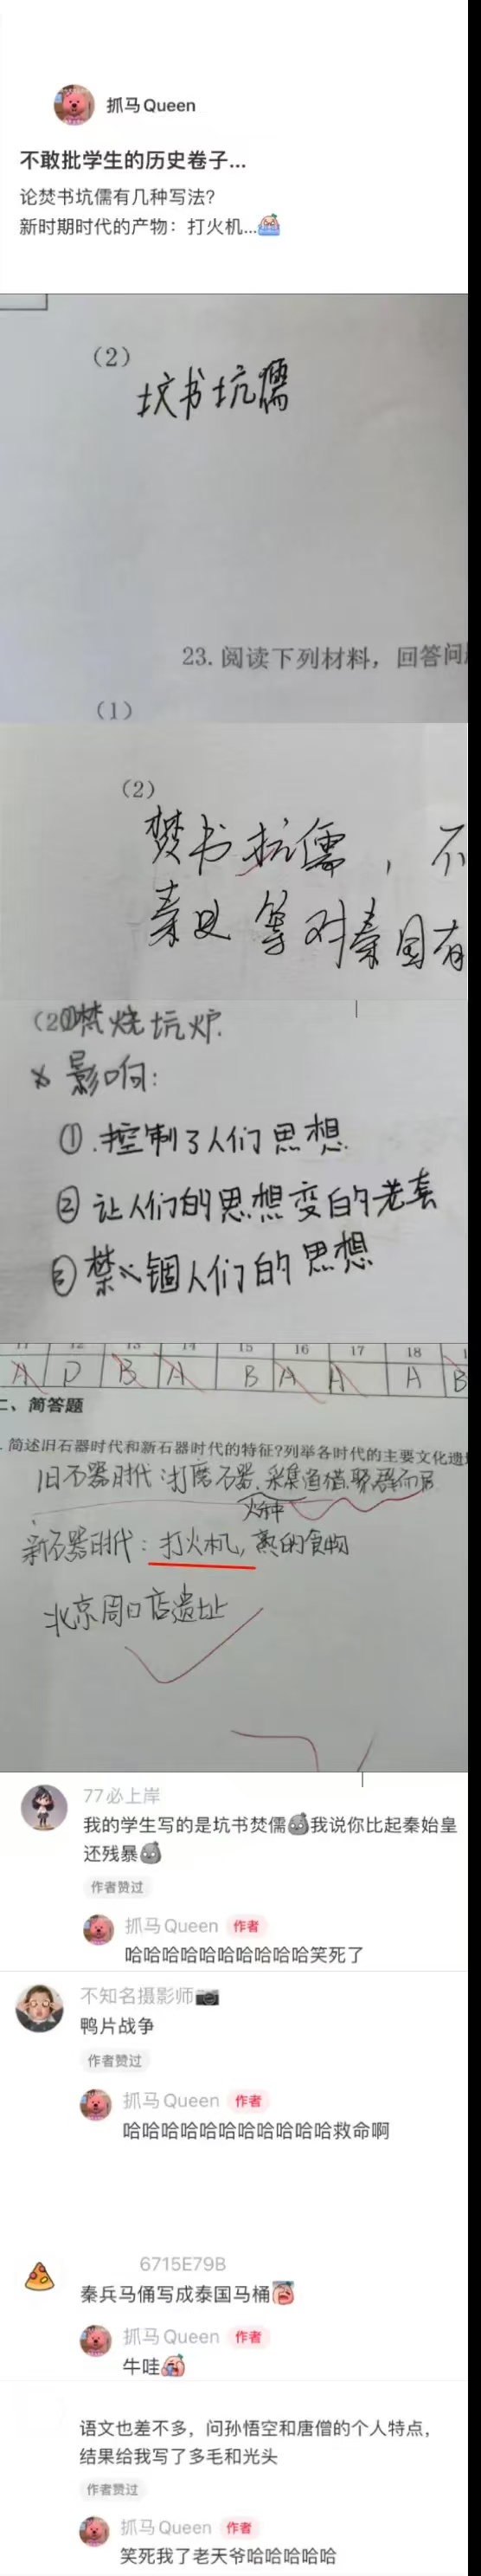 抓马Queen
不敢批学生的历史卷子...
论焚书坑儒有几种写法?
新时期时代的产物：打火机...
(2)
坟书坑儒
23. 阅读下列材料，回答问
(1)
(2)
焚书抗儒，不
秦史等对秦国有
(2)①焚烧坑炉.
影响:
①.控制了人们思想
②让人们的思想变的老套
③禁锢人们的思想
14 15 16 17 18
A D B A B A A A B
二、简答题
简述旧石器时代和新石器时代的特征?列举各时代的主要文化遗
旧石器时代:打磨石器.采集渔猎.聚群而居
火种
新石器时代：打火机,熟的食物
北京周口店遗址
77必上岸
我的学生写的是坑书焚儒我说你比起秦始皇
还残暴
作者赞过
抓马Queen 作者
哈哈哈哈哈哈哈哈哈哈笑死了
不知名摄影师
鸭片战争
作者赞过
抓马Queen 作者
哈哈哈哈哈哈哈哈哈哈哈救命啊
6715E79B
秦兵马俑写成泰国马桶
抓马Queen 作者
牛哇
语文也差不多，问孙悟空和唐僧的个人特点，
结果给我写了多毛和光头
作者赞过
抓马Queen 作者
笑死我了老天爷哈哈哈哈哈